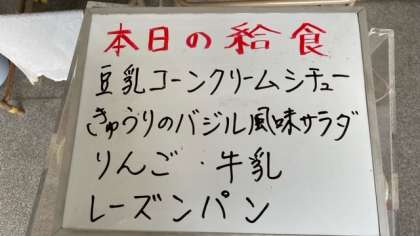 本日の給食
豆乳コーンクリームシチュー
きゅうりのバジル風味サラダ
りんご・牛乳
レーズンパン